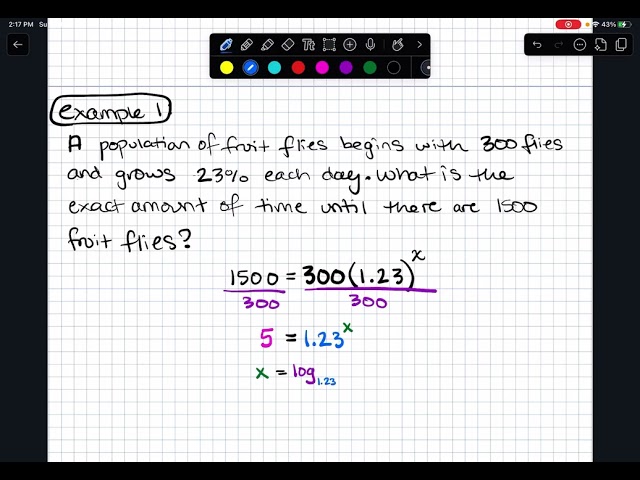 2:17 PM Su
43%
example 1
A population of fruit flies begins with 300 flies
and grows 23% each day. What is the
exact amount of time until there are 1500
fruit flies?
1500 = 300(1.23)^x
300 300
5 = 1.23^x
x = log_1.23